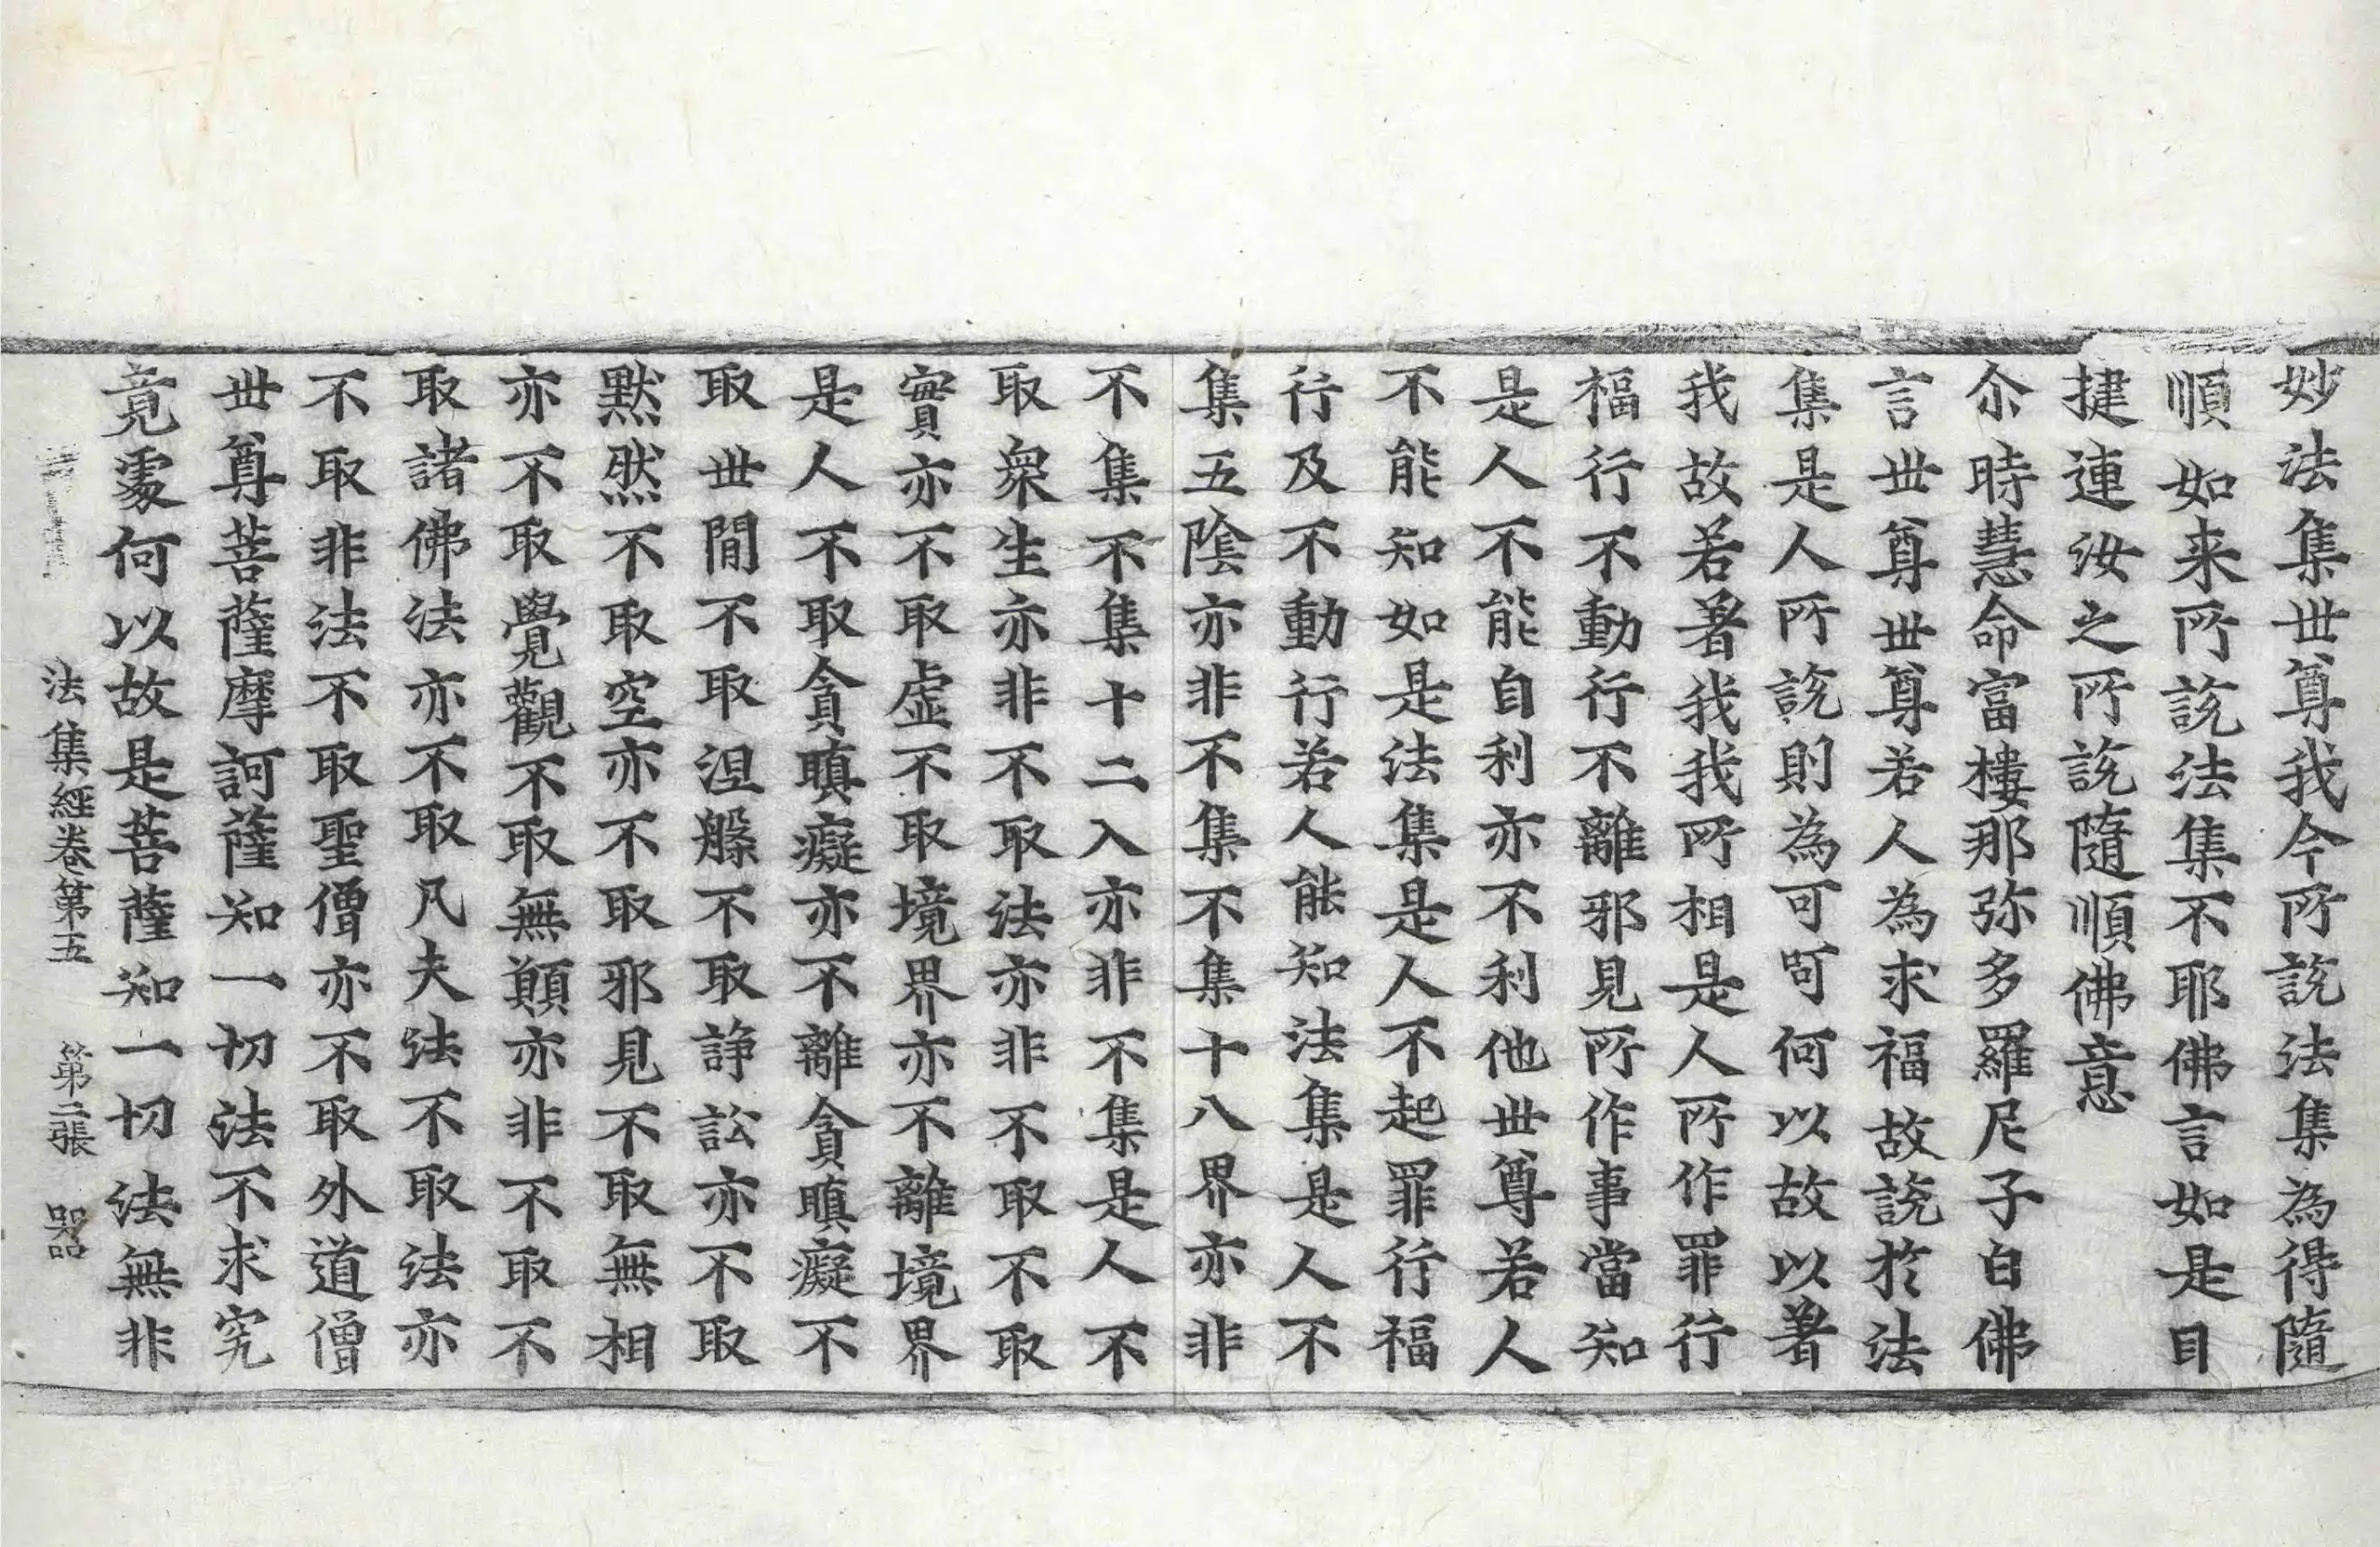 妙法集世尊我今所說法集為得隨
順如来所說法集不耶佛言如是目
揵連汝之所說隨順佛意
尒時慧命富樓那弥多羅尼子白佛
言世尊世尊若人為求福故說於法
集是人所說則為可呵何以故以著
我故若著我我所相是人所作罪行
福行不動行不離邪見所作事當知
是人不能自利亦不利他世尊若人
不能知如是法集是人不起罪行福
行及不動行若人能知法集是人不
集五陰亦非不集不集十八界亦非
不集不集十二入亦非不集是人不
取衆生亦非不取法亦非不取不取
實亦不取虛不取境界亦不離境界
是人不取貪瞋癡亦不離貪瞋癡不
取世間不取涅槃不取諍訟亦不取
默然不取空亦不取邪見不取無相
亦不取覺觀不取無顛亦非不取不
取諸佛法亦不取凡夫法不取法亦
不取非法不取聖僧亦不取外道僧
世尊菩薩摩訶薩知一切法不求究
竟處何以故是菩薩知一切法無非
法集經卷第五 第二張 器